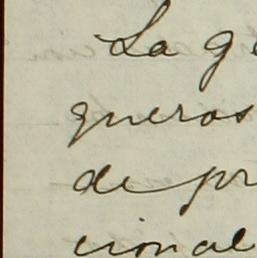 La g
queros
de pr
cional